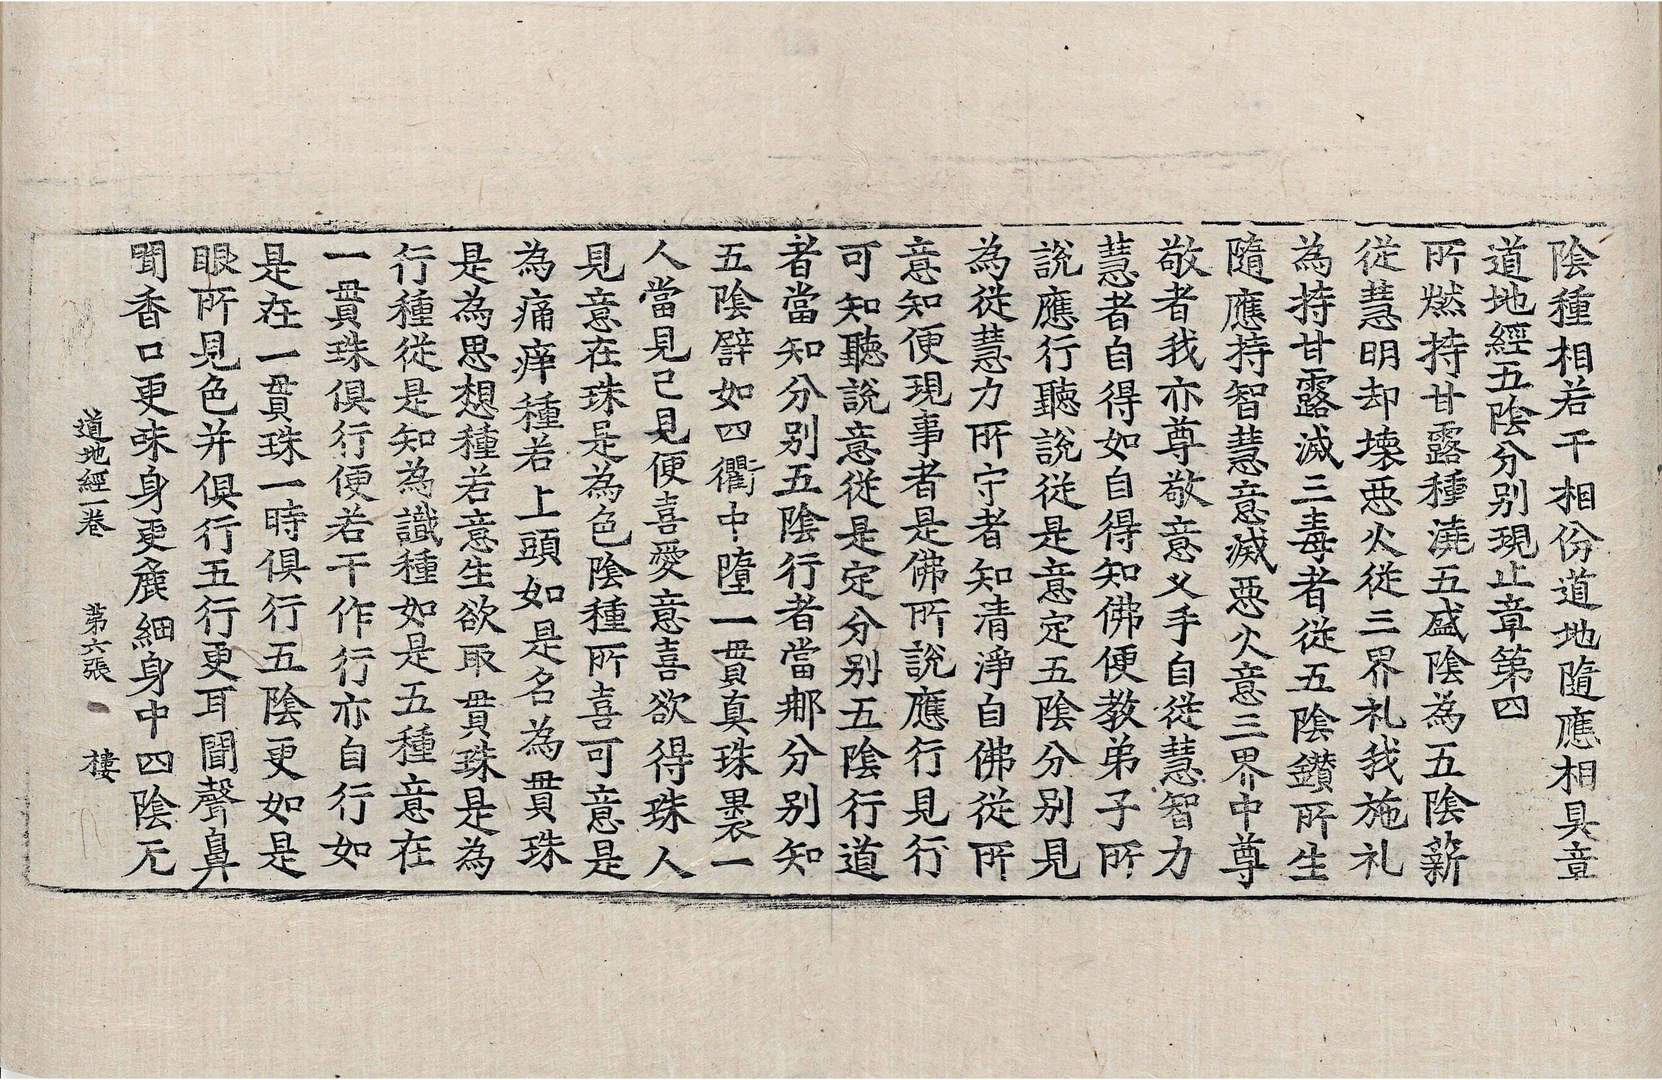 陰種相若干相份道地隨應相具章
道地經五陰分別現止章第四
所燃持甘露種澆五盛陰為五陰薪
從慧明却壞惡火從三界礼我施礼
為持甘露滅三毒者從五陰鑽所生
隨應持智慧意滅惡火意三界中尊
敬者我亦尊敬意叉手自從慧智力
慧者自得如自得知佛便教弟子所
說應行聽說從是意定五陰分別見
為從慧力所守者知清淨自佛從所
意知便現事者是佛所說應行見行
可知聽說意從是定分別五陰行道
者當知分別五陰行者當郍分別知
五陰譬如四衢中墮一貫真珠裹一
人當見已見便喜愛意喜欲得珠人
見意在珠是為色陰種所喜可意是
為痛痒種若上頭如是名為貫珠
是為思想種若意生欲取貫珠是為
行種從是知為識種如是五種意在
一貫珠俱行便若干作行亦自行如
是在一貫珠一時俱行五陰更如是
眼所見色并俱行五行更耳聞聲鼻
聞香口更味身更麁細身中四陰无
道地經一卷 第六張 樓